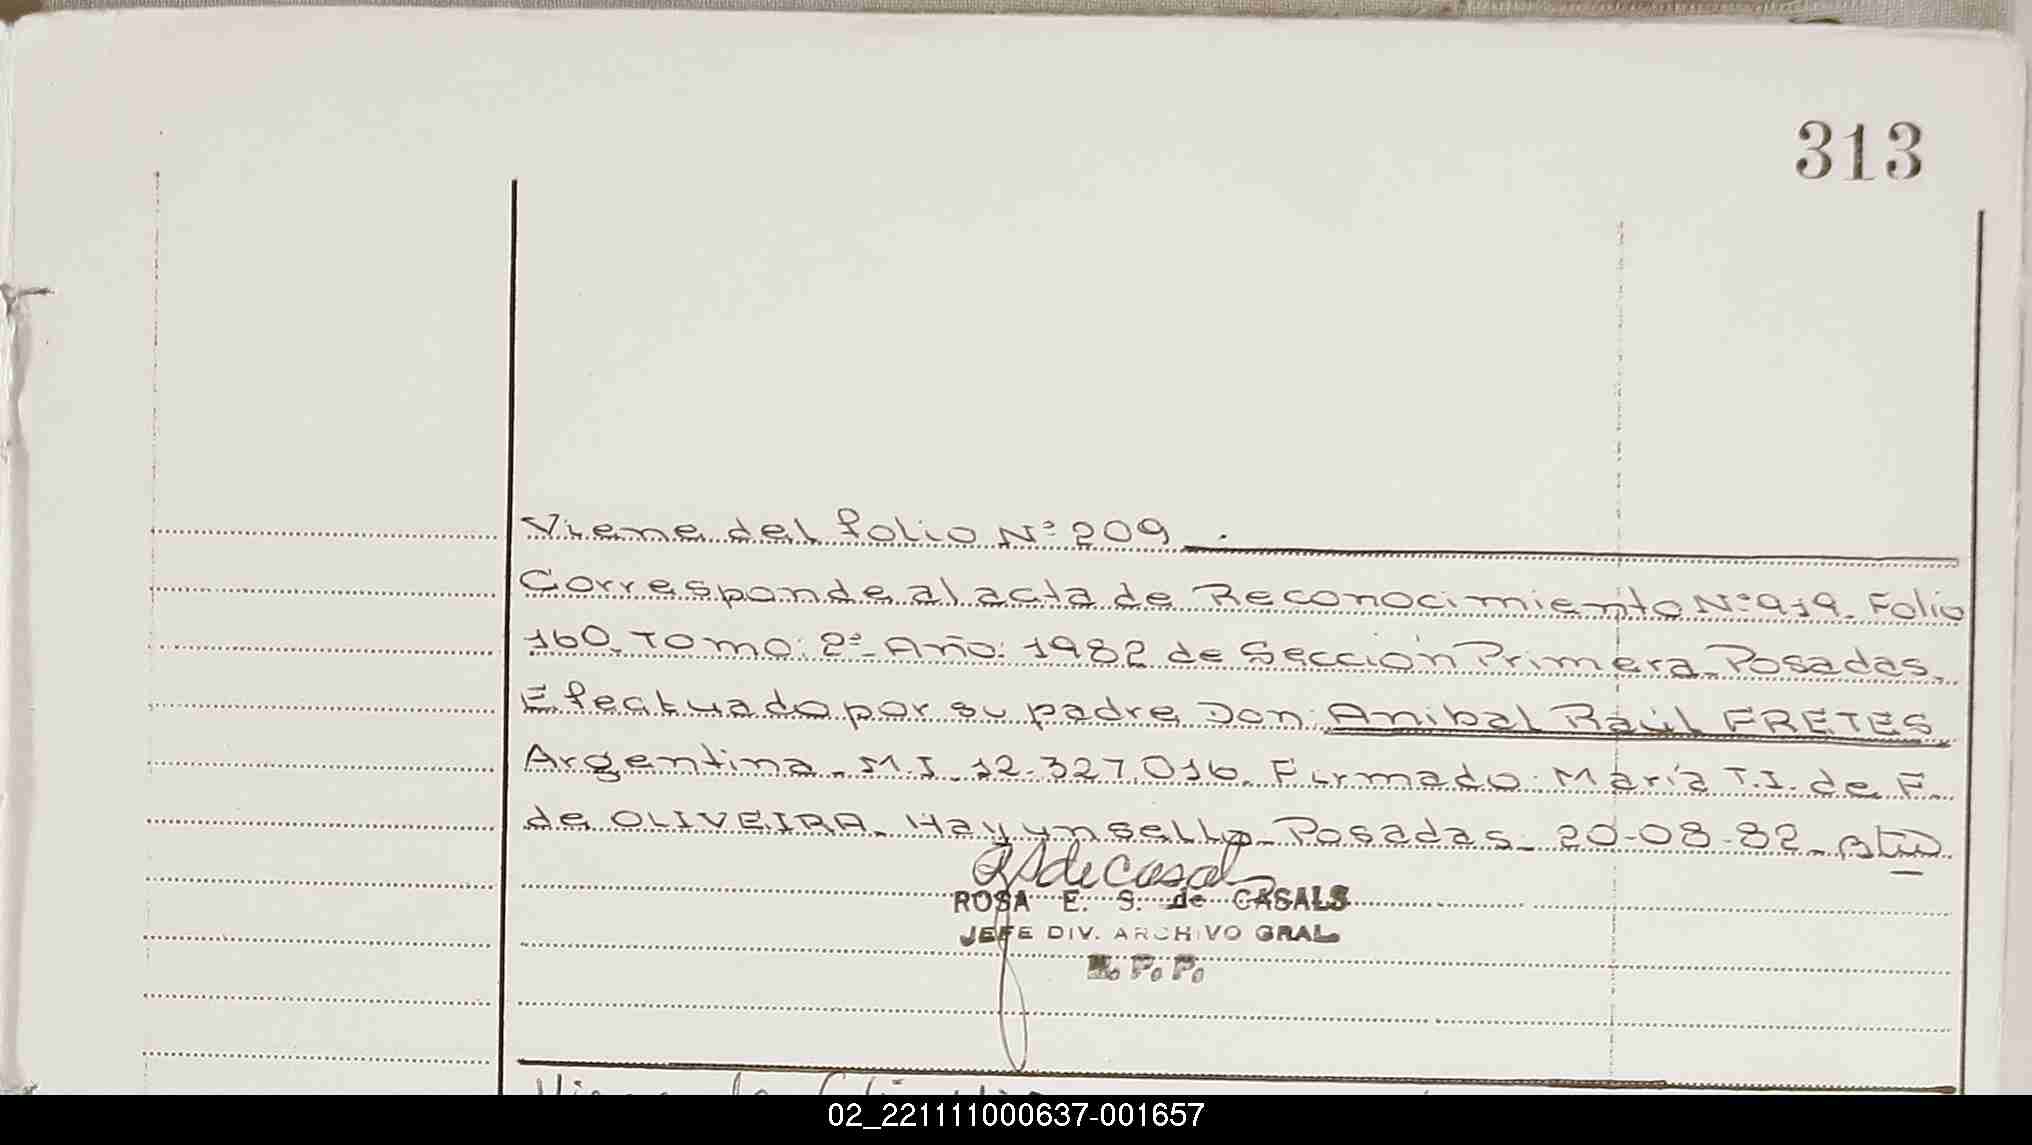 313
Viene del folio Nº 209.
Corresponde al acta de Reconocimiento Nº 919. Folio
160. Tomo: 2º- Año: 1982 de Sección Primera- Posadas.
Efectuado por su padre Don: Anibal Raúl FRETES
Argentina. M.I. 12.327.016. Firmado: María T.I. de F.
de OLIVEIRA. Hay un sello- Posadas- 20-08-82-
RSdeCasals
ROSA E. S. de CASALS
JEFE DIV. ARCHIVO GRAL
R. P. P.
02_221111000637-001657